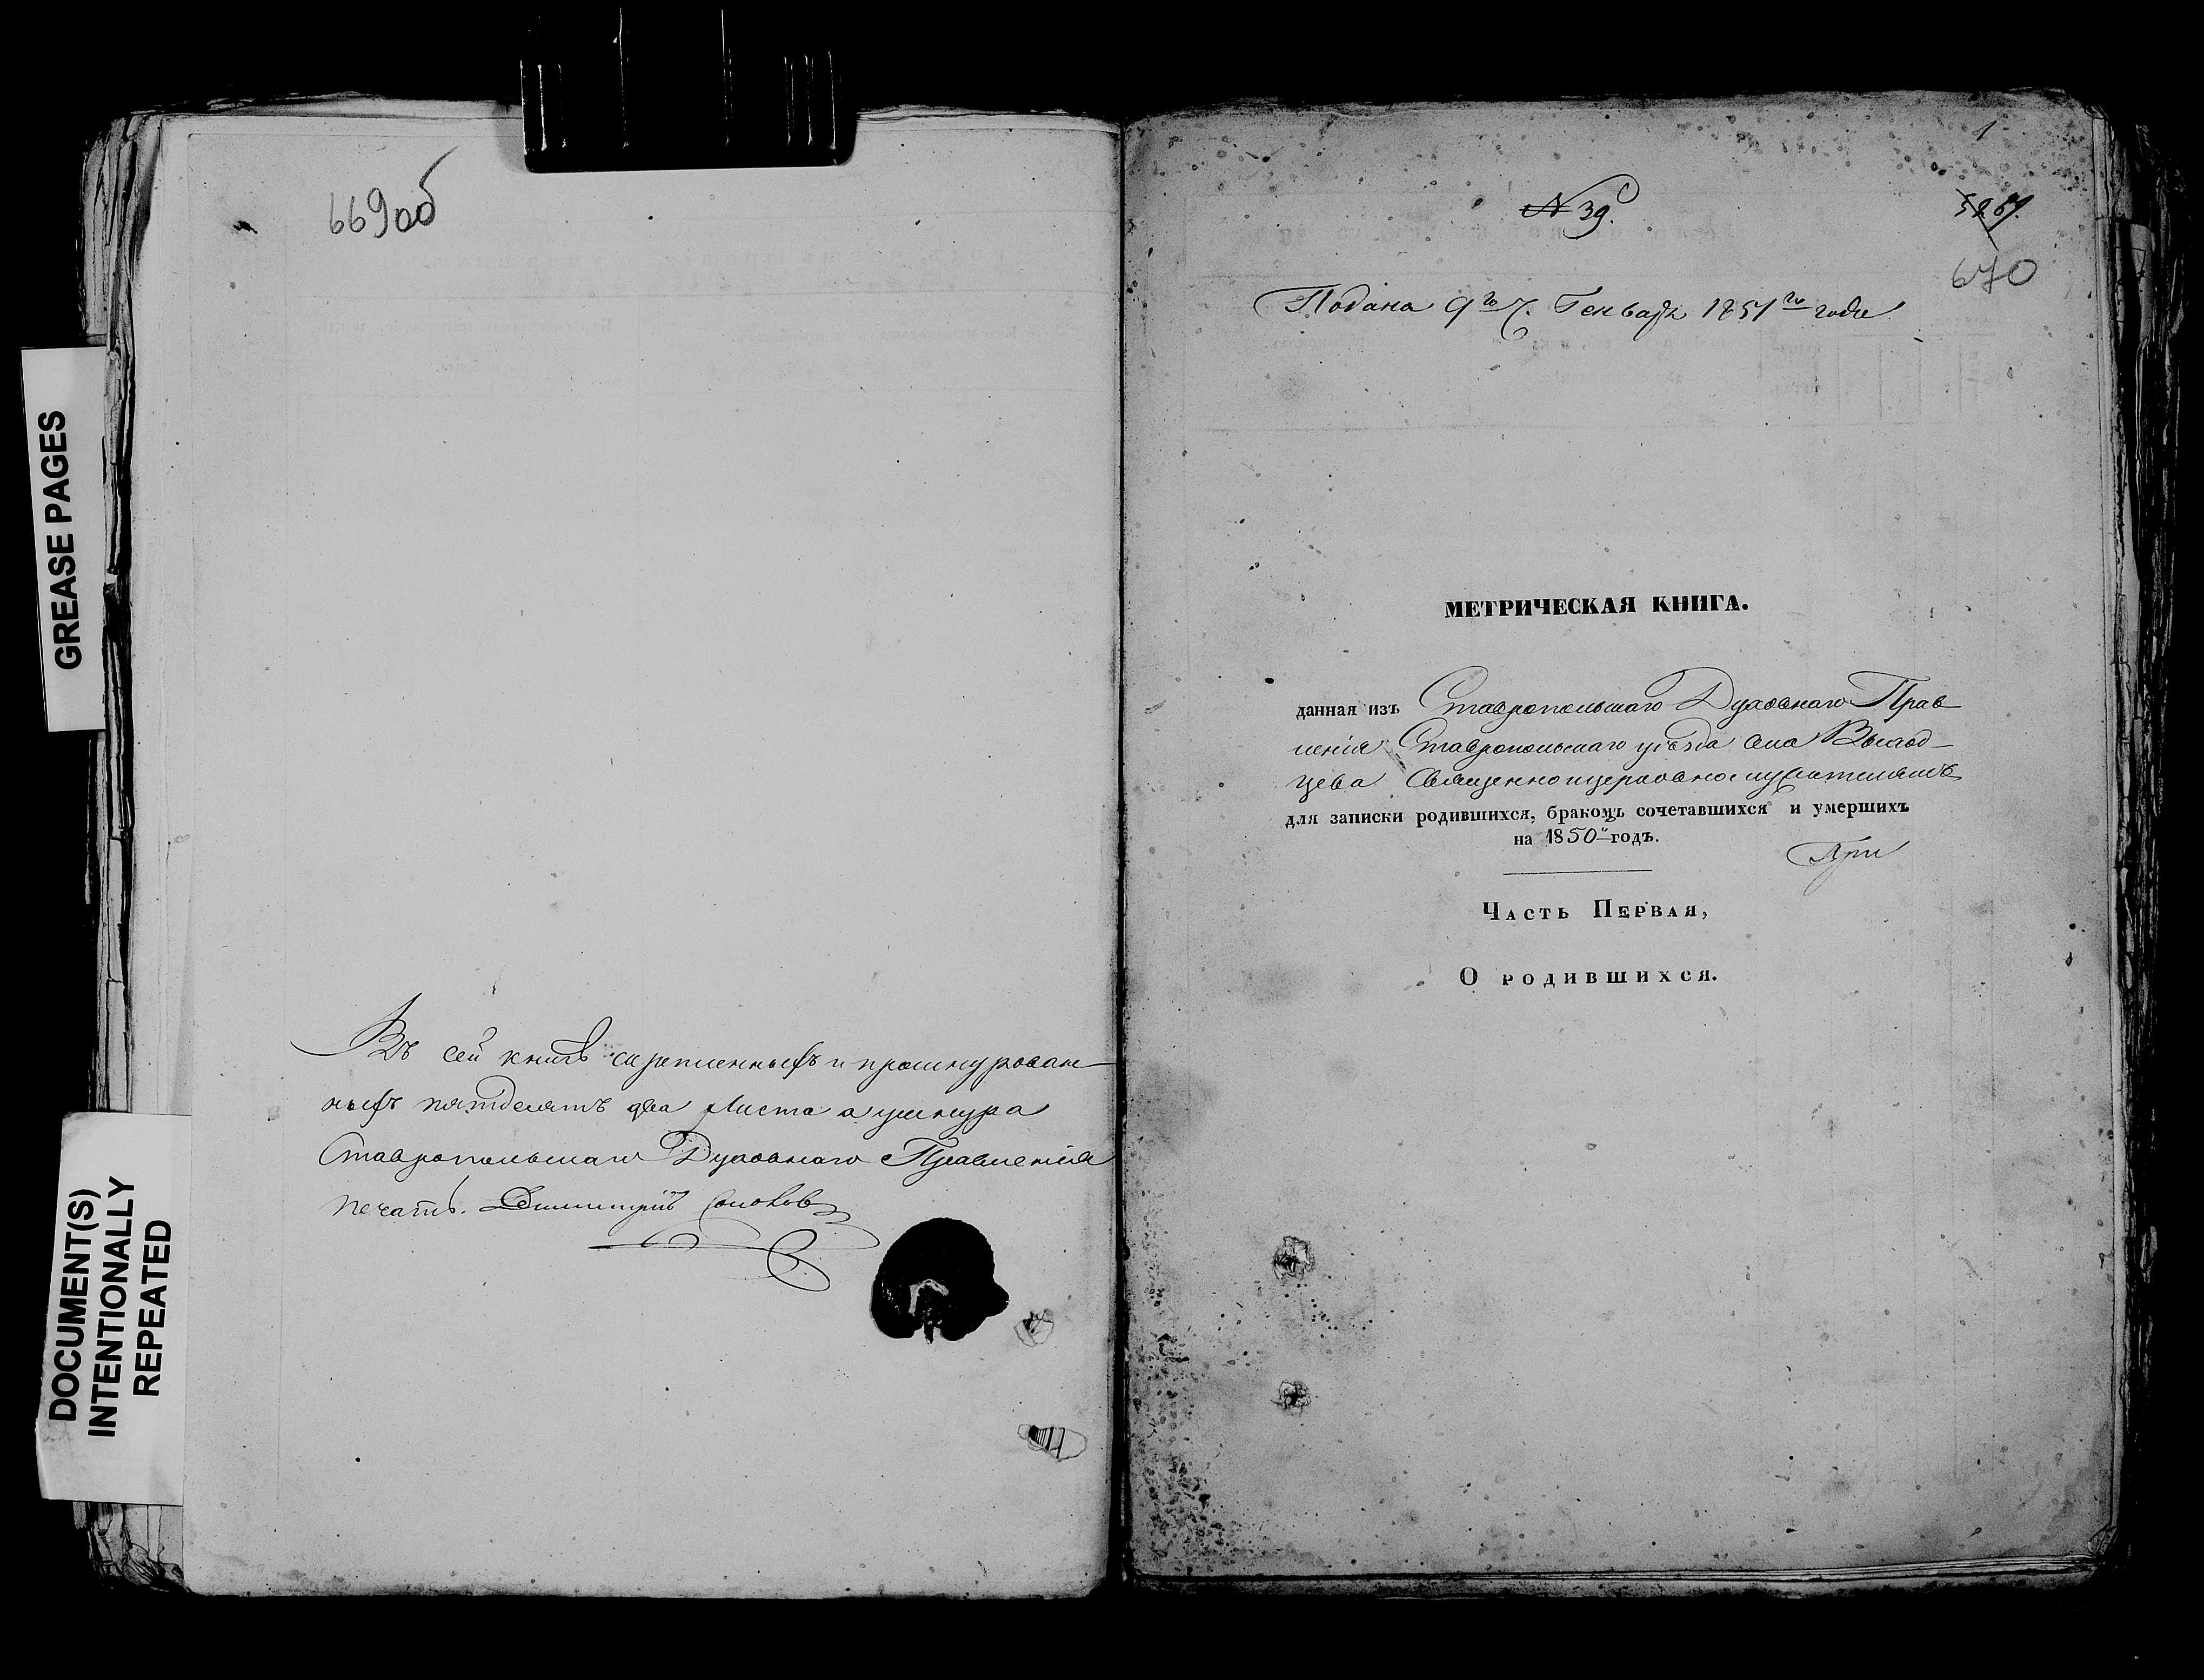 GREASE PAGES
DOCUMENT(S)
INTENTIONALLY
REPEATED
669об
Въ сей книгѣ скрепленныхъ и прошнурован-
ныхъ пятдесятъ два листа а у шнура
Ставропольскаго Духовнаго Правленія
печать. Димитрій
1
N 39.
670
Подана 9го ч. Генваря 1851го года
МЕТРИЧЕСКАЯ КНИГА.
данная изъ Ставропольскаго Духовнаго Прав
ленія Ставропольскаго уѣзда села
цева Священноцерковнослужителямъ
для записки родившихся, бракомъ сочетавшихся и умершихъ
на 1850й годъ.
Часть Первая,
О родившихся.